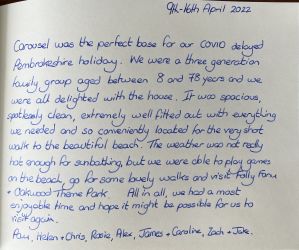 9th-16th April 2022
Carousel was the perfect base for our COVID delayed
Pembrokeshire holiday. We were a three generation
family group aged between 8 and 78 years and we
were all delighted with the house. It was spacious,
spotlessly clean, extremely well fitted out with everything
we needed and so conveniently located for the very short
walk to the beautiful beach. The weather was not really
hot enough for sunbathing, but we were able to play games
on the beach, go for some lovely walks and visit Folly Farm
+ Oakwood Theme Park. All in all, we had a most
enjoyable time and hope it might be possible for us to
visit again.
Helen + Chris, Rosie, Alex, James + Caroline, Zach + Jake.